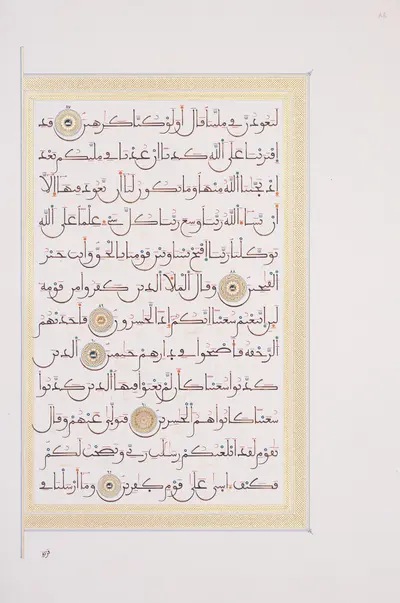 لتعودن في ملتنا قال أولو كنا كرهين قد
افترينا على الله كذبا إن عدنا في ملتكم بعد
إذ نجينا الله منها وما يكون لنا أن نعود فيها إلا
أن يشاء الله ربنا وسع ربنا كل شيء علما على الله
توكلنا ربنا افتح بيننا وبين قومنا بالحق وأنت خير
الفتحين وقال الملأ الذين كفروا من قومه
لين اتبعتم شعيبا إنكم إذا لخسرون فأخذتهم
الرجفة فأصبحوا في دارهم جثمين الذين
كذبوا شعيبا كأن لم يغنوا فيها الذين كذبوا
شعيبا كانوا هم الخسرين فتولى عنهم وقال
يقوم لقد أبلغتكم رسلت ربي ونصحت لكم
فكيف ءاسى على قوم كفرين وما أرسلنا في